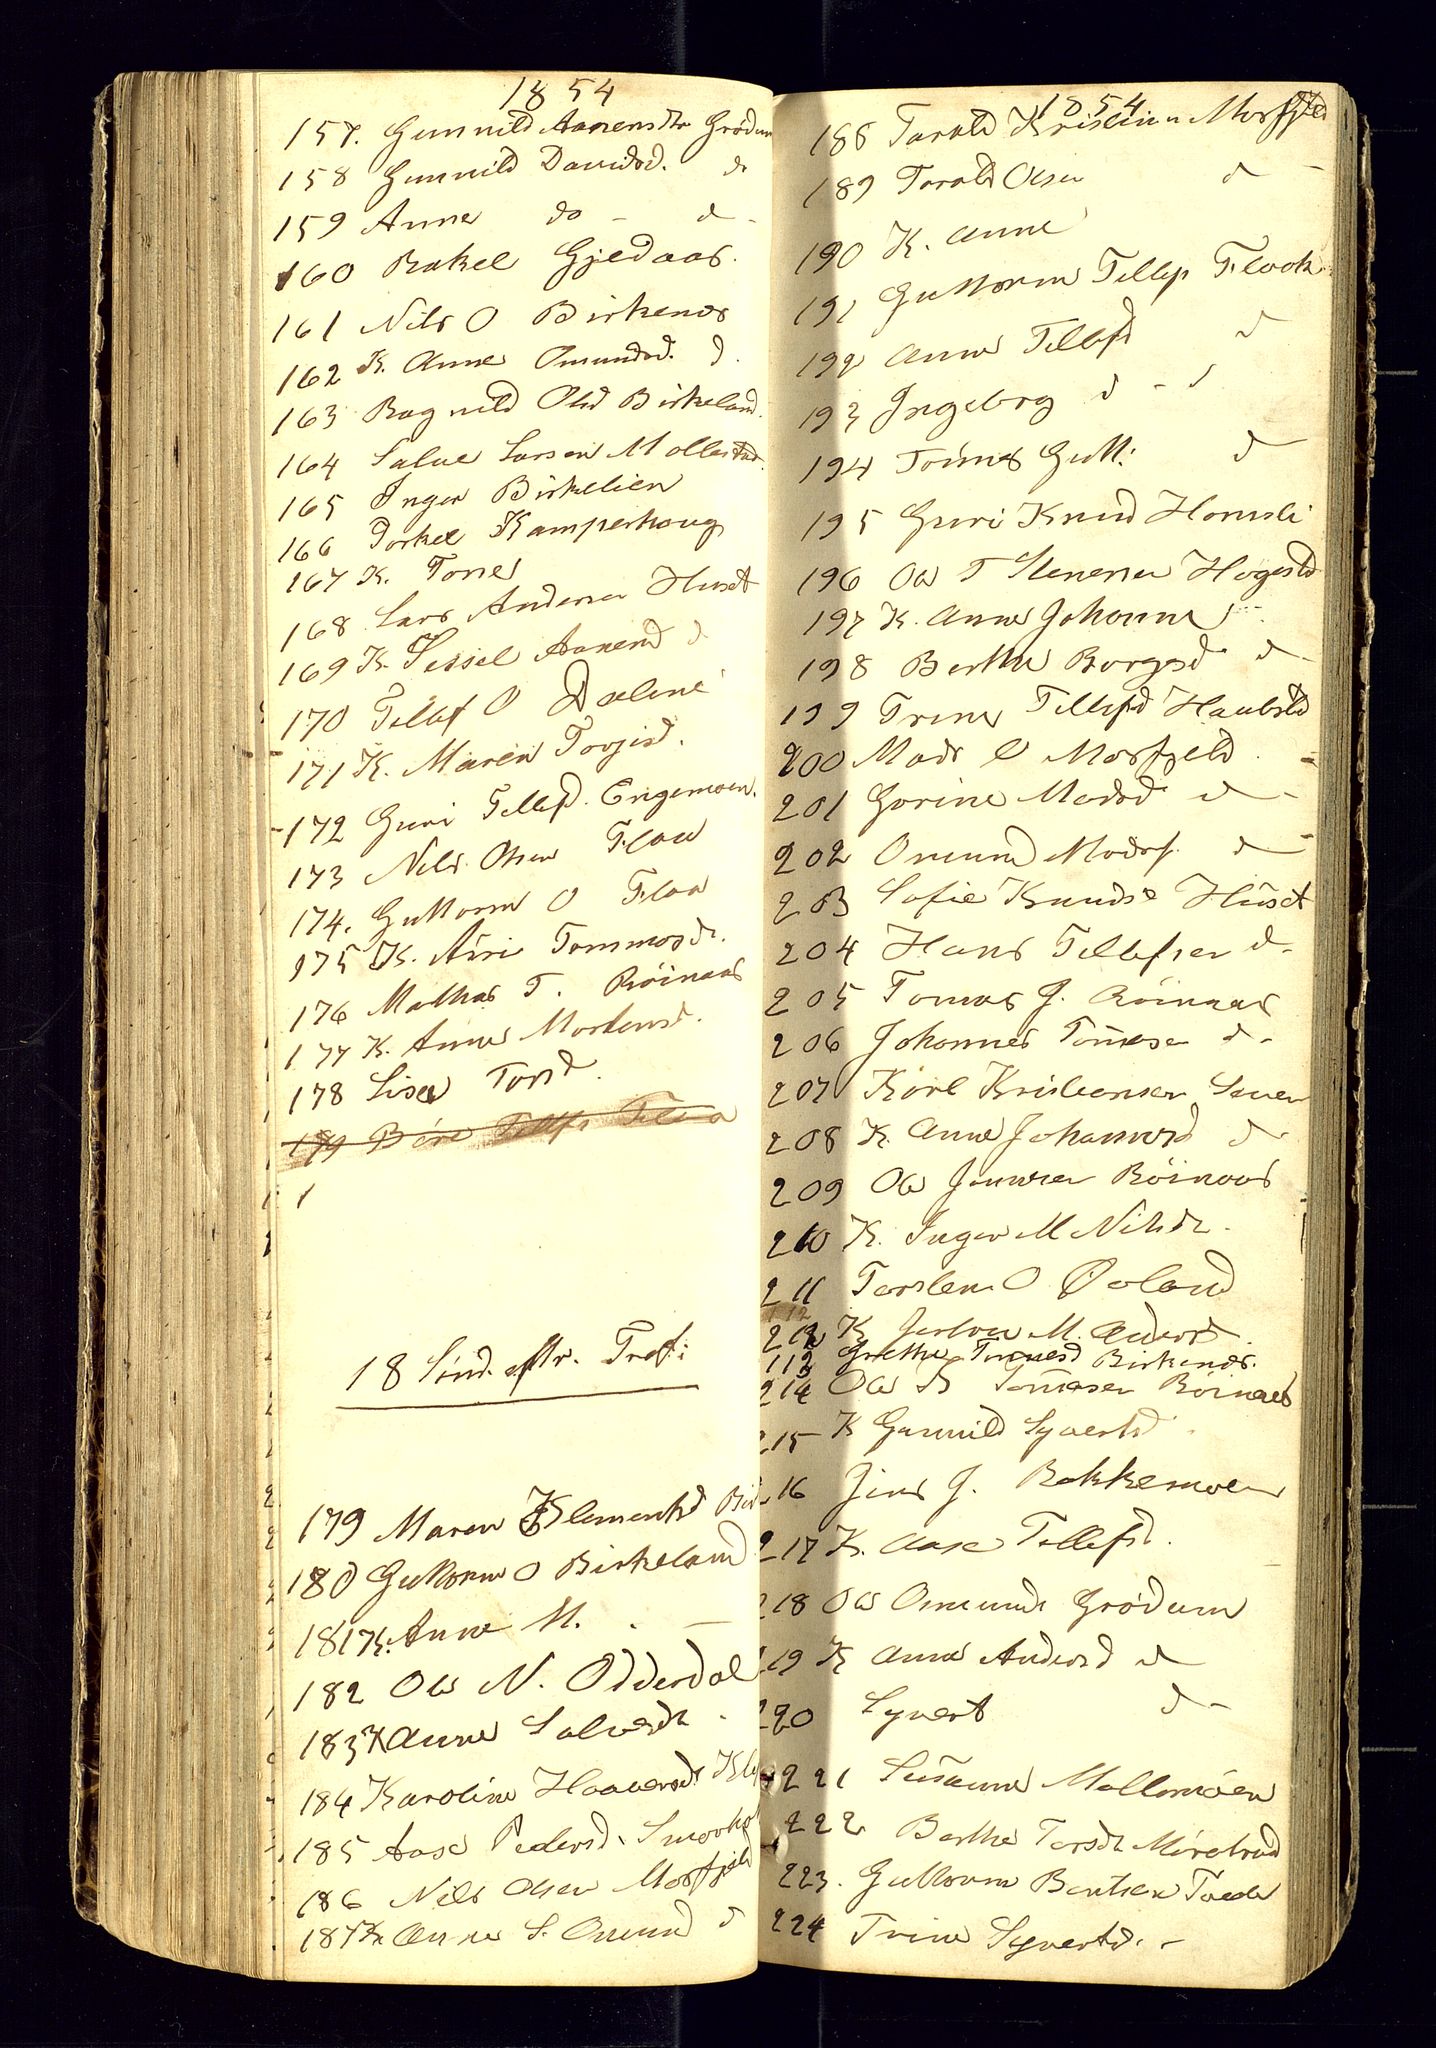 1854
157. Gunnild Aanensdtr Grödum
158 Gunnild Davidsd. do
159 Anne do - d -
160 Rakel Gjedaas.
161 Nils O Birkenes
162 K. Anne Omundsd. d.
163 Ragnild Olsd Birkeland.
164 Salve Larsen Mollestad.
165 Inger Birkelien
166 Torkel Kamperhoug
167 K. Tone
168 Lars Andersen Huset
169 K. Sissel Aanensd d
170 Tellef O Dalene
171 K. Maren Torjisd.
172 Guri Tellefsd. Engemoen.
173 Nils Olsen Flaa
174. Guttorm O Flaa
175 K. Asri Tommasdr.
176 Mathas T. Röinaas
177 K. Anne Mortensd.
178 Lisa Torsd.
179 Böre Tellfs Flaa
1
18 Sönd. eftr. Tref:
179 Maren Klementsd Bir
180 Guttorm O Birkeland
181 K. Anne M. . —
182 Ole N. Odderdal
183 K Anne Salvesdr -
184 Karoline Haaversdr Kle
185 Aase Pedersd. Smorho
186 Nils Olsen Mosfjeld
187 K Anne S. Omund d
1854
188 Tarald Kristian Mosfjeld
189 Tarald Olsen d -
190 K. Anne
191 Guttorm Tellefs Flaak
192 Anne Tellefsd d
193 Ingeborg d - d
194 Tönnes Gutt: d
195 Guri Knud Homsli
196 Ole T Stenersen Hogestd
197 K. Anne Johanne d -
198 Berthe Borgesd d -
199 Trine Tellefsd Haabstd
200 Mads O Mosfjeld
201 Gorine Madsd d -
202 Omund Madsf. d -
203 Sofie Knuds Huset
204 Hans Tellefsen d -
205 Tomas J. Röinaas
206 Johannes Tomasen d -
207 Karl Kristensen
208 K. Anne Johannesd d -
209 Ole Jensen Röinaas
210 K. Inger M Nilsdr.
211 Torsten O Roland
212 K M. Anders.
113 Grethe Tönnesd Birkenes.
214 Ole B Tomasen Röinaas
215 K Gunnild Syvertsd
16 Jens J. Bakkemoen
217 K. Aase Tellefsd.
218 Ole Omunds Grödum
219 K Anne Andersd d
220 Syvert d -
221 Susanne Mollemoen
222 Berthe Torsdtr
223. Guttorm Bentsen Tveide
224 Trine Syvertsd. -